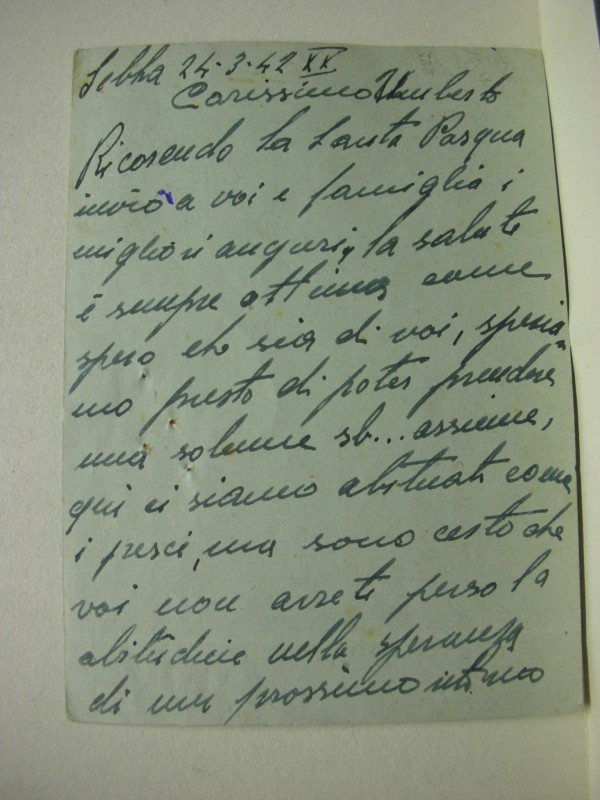 Sebha 24-3-42 XX
Carissimo Umberto
Ricorendo la Santa Pasqua
invio a voi e famiglia i
migliori auguri, la salute
è sempre ottima come
spero che sia di voi, speria=
mo presto di poter prendere
una solenne sb... assieme,
qui ci siamo abituati come
i pesci, ma sono certo che
voi non avrete perso la
abitudine nella speranza
di un prossimo